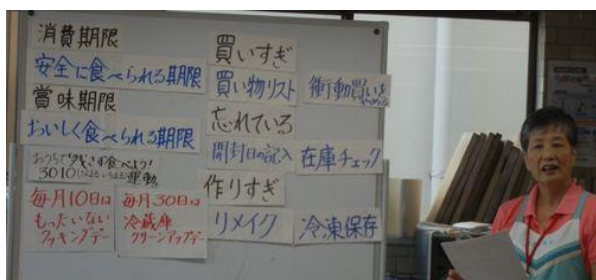 消費期限
安全に食べられる期限
賞味期限
おいしく食べられる期限
おうちで残さず食べよう!
3010運動
毎月10日は
もったいない
クッキングデー
毎月30日は
冷蔵庫
クリーンアップデー
買いすぎ
買い物リスト
衝動買いを
やめる
忘れている
開封日の記入
在庫チェック
作りすぎ
リメイク
冷凍保存